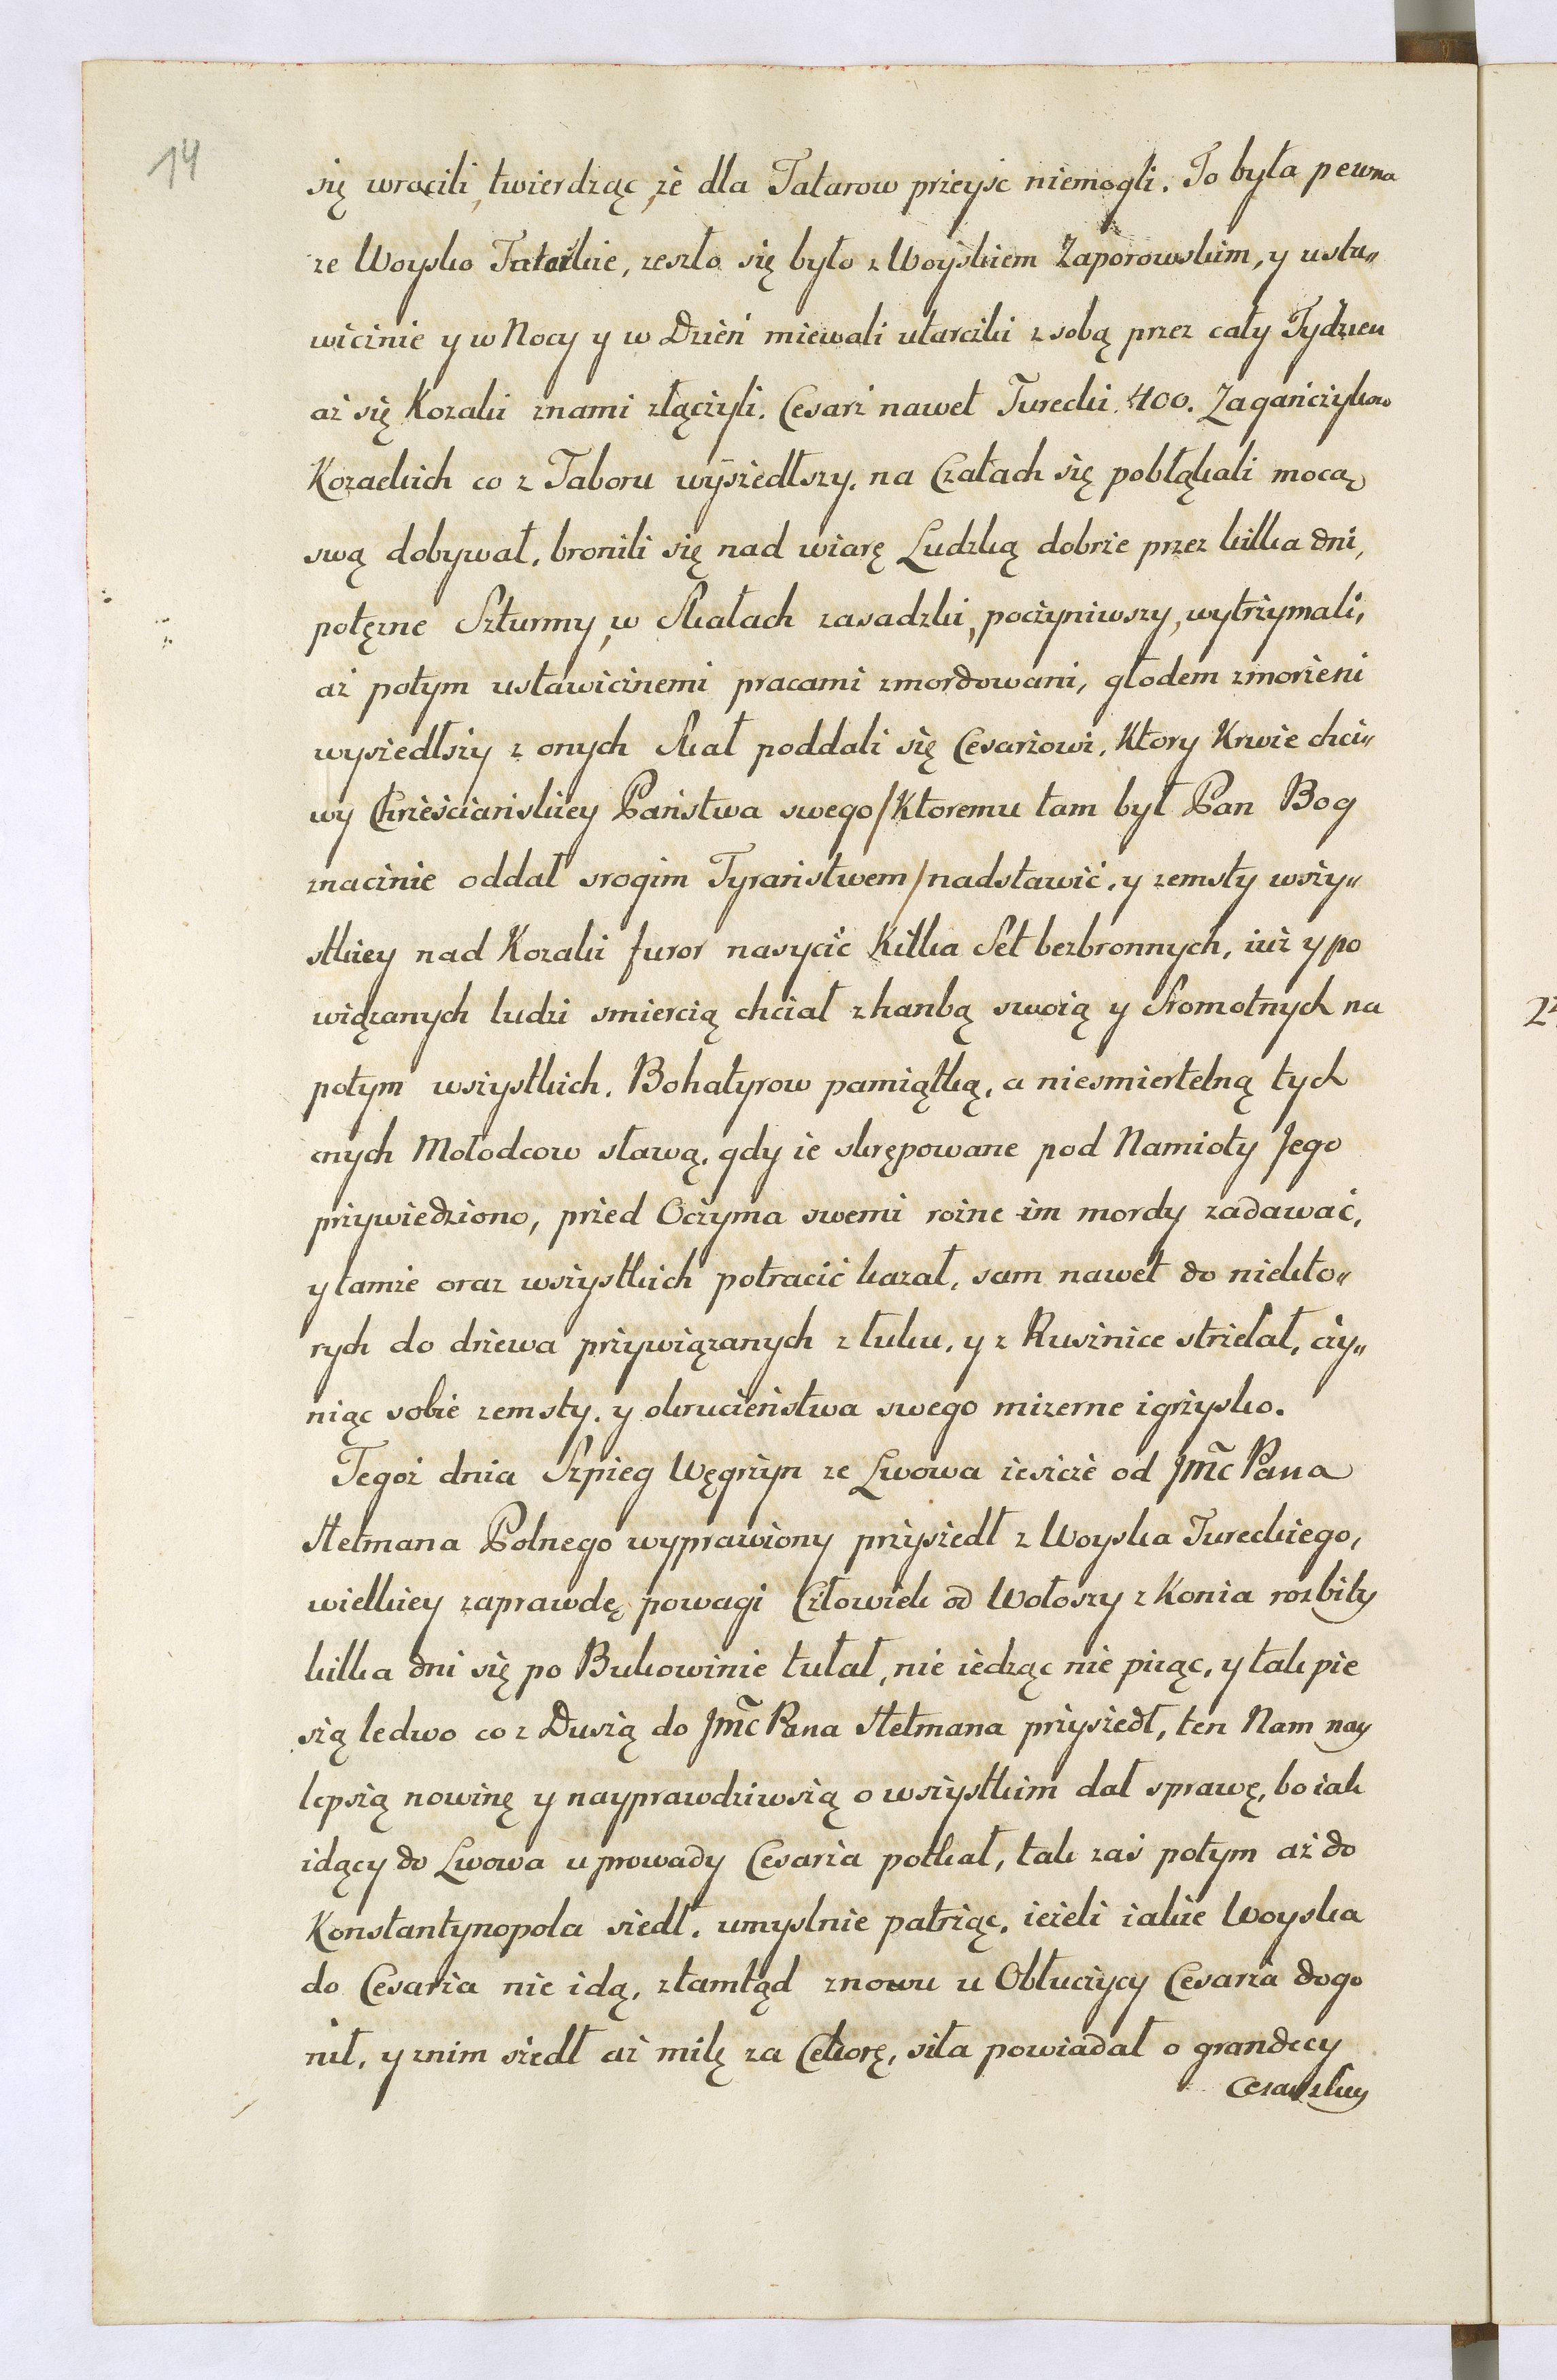 14
się wrocili, twierdząc, że dla Tatarow przeyść niemogli. To była pewna
że Woysko Tatarskie, zeszło się było z Woyskiem Zaporowskim, y usta„
wicznie y w Nocy y w Dzień miewali utarczki z sobą przez cały Tydzień
aż się Kozaki znami złączyli. Cesarz nawet Turecki 400. Zagańczykow
Kozackich co z Taboru wyszedłszy, na Czatach się pobłąkali mocą
swą dobywał, bronili się nad wiarę Ludzką dobrze przez kilka dni,
potęzne Szturmy, w Skałach zasadzki, poczyniwszy, wytrzymali,
aż potym ustawicznemi pracami zmordowani, głodem zmorzeni
wyszedłszy z onych Skał poddali się Cesarzowi, Ktory Krwie chci„
wy Chrześciańskiey Państwa swego/Ktoremu tam był Pan Bog
znacznie oddał srogim Tyraństwem/nadstawić, y zemsty wszy„
stkiey nad Kozaki furor nasycić Kilka Set bezbronnych, iuż y po
wiązanych ludzi smiercią chciał z hanbą swoią y Sromotnych na
potym wszystkich, Bohatyrow pamiątką, a niesmiertelną tych
cnych Mołodcow sławą, gdy ie skrępowane pod Namioty Jego
przywiedziono, przed Oczyma swemi rożne im mordy zadawać,
y tamże oraz wszystkich potracić kazał, sam nawet do niekto„
rych do drzewa przywiązanych z łuku, y z Rusznice strzelał, czy„
niąc sobie zemsty, y okrucieństwa swego mizerne igrzysko.
Tegoż dnia Szpieg Węgrzyn ze Lwowa ieszcze od Jmc Pana
Hetmana Polnego wyprawiony przyszedł z Woyska Tureckiego,
wielkiey zaprawdę powagi Człowiek od Wołoszy z Konia rozbity
kilka dni się po Bukowinie tułał, nie iedząc nie piiąc, y tak pie
szą ledwo co z Duszą do Jmc Pana Hetmana przyszedł, ten Nam nay
lepszą nowinę y nayprawdziwszą o wszystkim dał sprawę, bo iak
idący do Lwowa uprowady Cesarza potkał, tak zaś potym aż do
Konstantynopola szedł, umyslnie patrząc, ieżeli iakie Woyska
do Cesarza nie idą, ztamtąd znowu u Obłuczycy Cesarza dogo
nił, y znim szedł aż milę za Cekorę, siła powiadał o grandecy
Cesarskiey